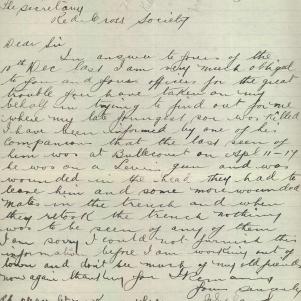 The Secretary
Red Cross Society
Dear Sir
In answer to yours of the
10th Dec last I am very much obliged
to you and your officers for the great
trouble you have taken on my
behalf in trying to find out for me
where my late youngest son was killed
I have been informed by one of his
companions that the last seen of
him was at Bullecourt on April 11-17
he was on a Lewis gun and was
wounded in the they had to
leave him and some more wounded
mates in the trench and when
they retook the trench nothing
was to be seen of any of them
I am sorry I could not furnish this
information before I am working out of
town and don't be much of my
now again thanking you I
Yours sincerely